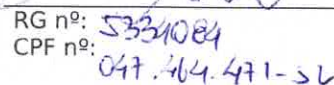 RG nº: 5334084
CPF nº:
047.464.471-